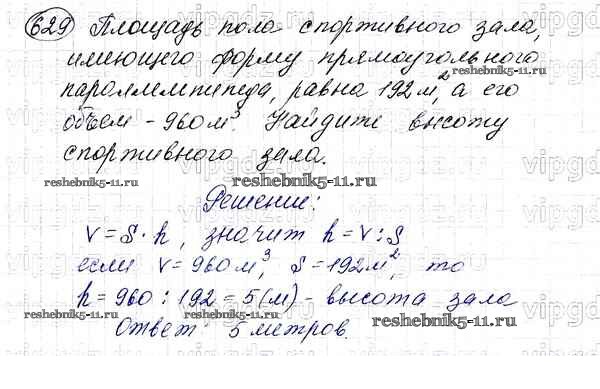 629 Площадь пола спортивного зала,
имеющего форму прямоугольного
reshebnik5-11.ru
параллелепипеда, равна 192 м², а его
объем - 960 м³. Найдите высоту
спортивного зала.
reshebnik5-11.ru reshebnik5-11.ru
Решение:
V = S · h, значит h = V : S
если V = 960 м³, S = 192 м², то
h = 960 : 192 = 5 (м) - высота зала
reshebnik5-11.ru reshebnik5-11.ru
Ответ: 5 метров.